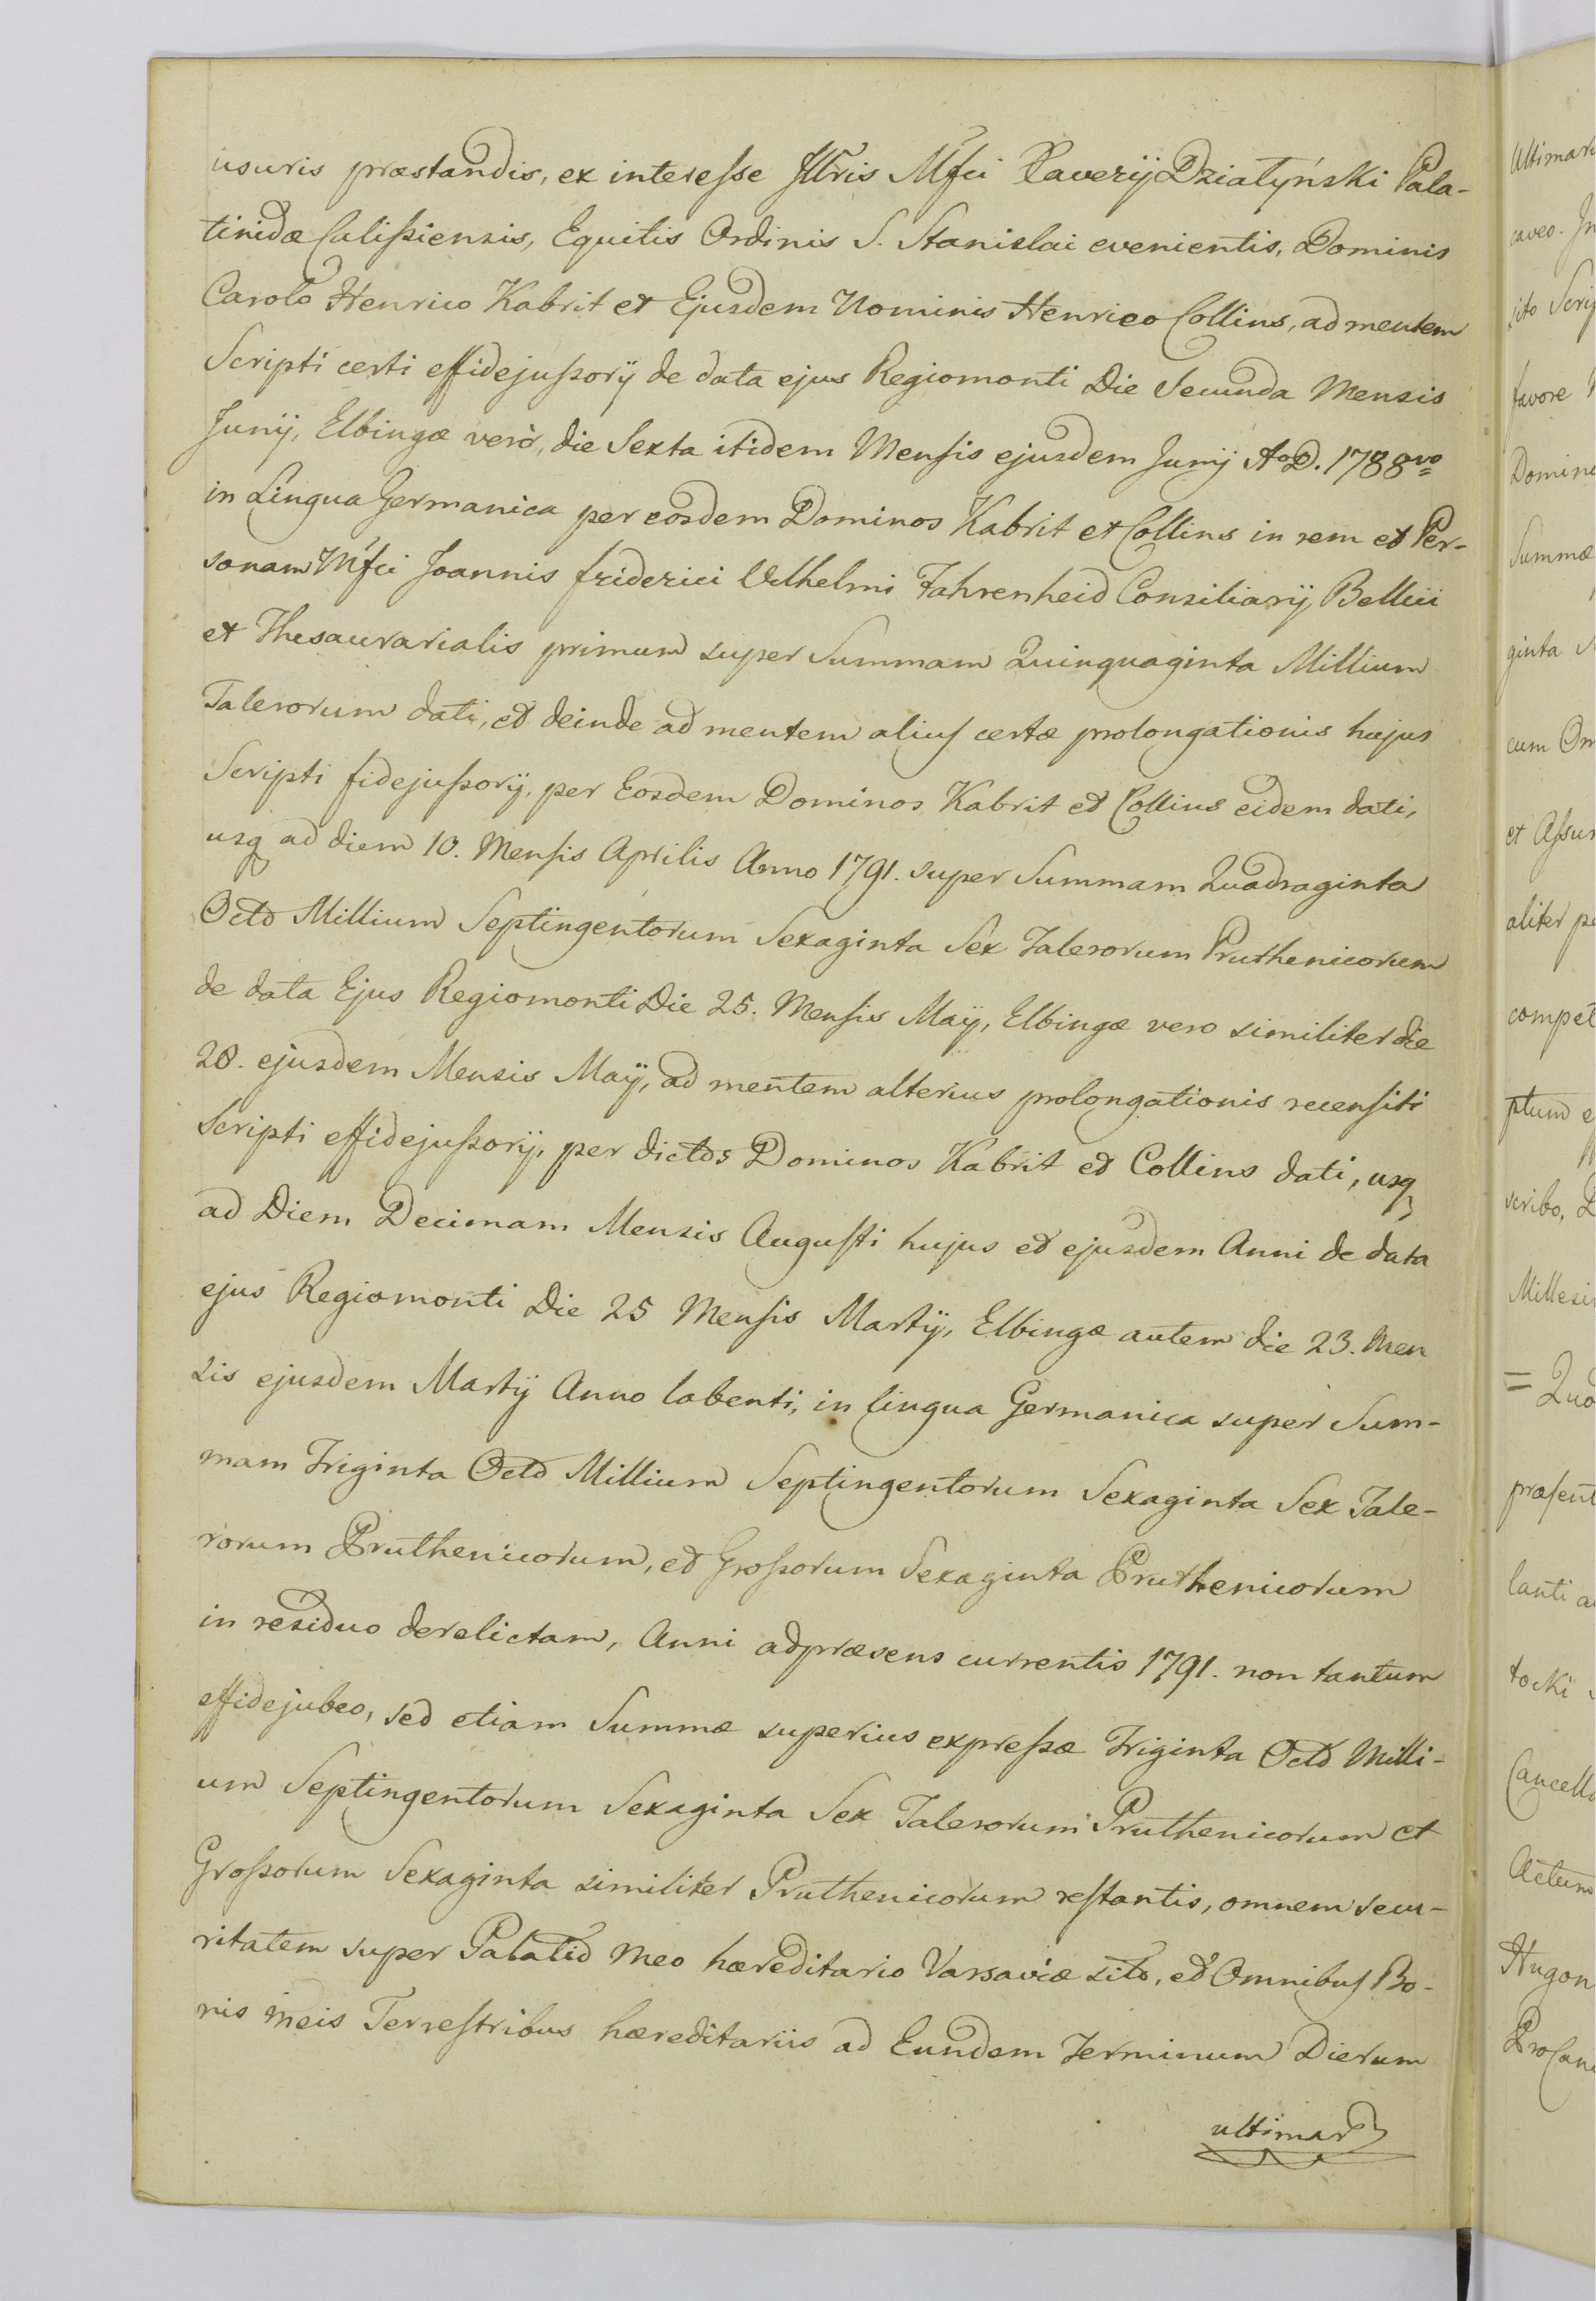 usuris præstandis, ex interesse Illris Mfci Xaverij Działyński Pala-
tinidæ Calissiensis, Equitis Ordinis S. Stanislai evenientis, Dominis
Carolo Henrico Kabrit et Ejusdem Nominis Henrico Collins, ad mentem
Scripti certi effidejussorij de data ejus Regiomonti Die Secunda Mensis
Junij, Elbingæ verò, die Sexta itidem Mensis ejusdem Junij Ao D. 1788vo
in Lingua Germanica per eosdem Dominos Kabrit et Collins in rem et Per-
sonam Mfci Joannis friderici Vilhelmi Fahrenheid Consiliarij Bellici
et Thesaurarialis primum super Summam Quinquaginta Millium
Talerorum dati, et deinde ad mentem alius certæ prolongationis hujus
Scripti fidejussorij, per Eosdem Dominos Kabrit et Collins eidem dati,
usq ad diem 10. Mensis Aprilis Anno 1791. super Summam Quadraginta
Octo Millium Septingentorum Sexaginta Sex Talerorum Pruthenicorum
de data Ejus Regiomonti Die 25. Mensis Maij, Elbingæ vero similiter die
28. ejusdem Mensis Maij, ad mentem alterius prolongationis recensiti
Scripti effidejussorij, per dictos Dominos Kabrit et Collins dati, usq
ad Diem Decimam Mensis Augusti hujus et ejusdem Anni de data
ejus Regiomonti Die 25 Mensis Martij, Elbingæ autem die 23. Men
sis ejusdem Martij Anno labenti, in lingua Germanica super Sum-
mam Triginta Octo Millium Septingentorum Sexaginta Sex Tale-
rorum Pruthenicorum, et Grossorum Sexaginta Pruthenicorum
in residuo derelictam, Anni adpræsens currentis 1791. non tantum
effidejubeo, sed etiam Summæ superius expressæ Triginta Octo Milli-
um Septingentorum Sexaginta Sex Talerorum Pruthenicorum et
Grossorum Sexaginta similiter Pruthenicorum restantis, omnem secu-
ritatem super Palatio meo hæreditario Varsaviæ sito, et Omnibus Bo-
nis meis Terrestribus hæreditariis ad Eundem Terminum Dierum
ultimar
Ultimar
caveo. In
sito Scrip
favore
Domin
Summæ
ginta
cum Om
et Assu
aliter pe
compet
ptum e
scribo,
Millesi
= Quo
præsent
lanti a
tocki
Cancell
Actum
Hugon
ProCan